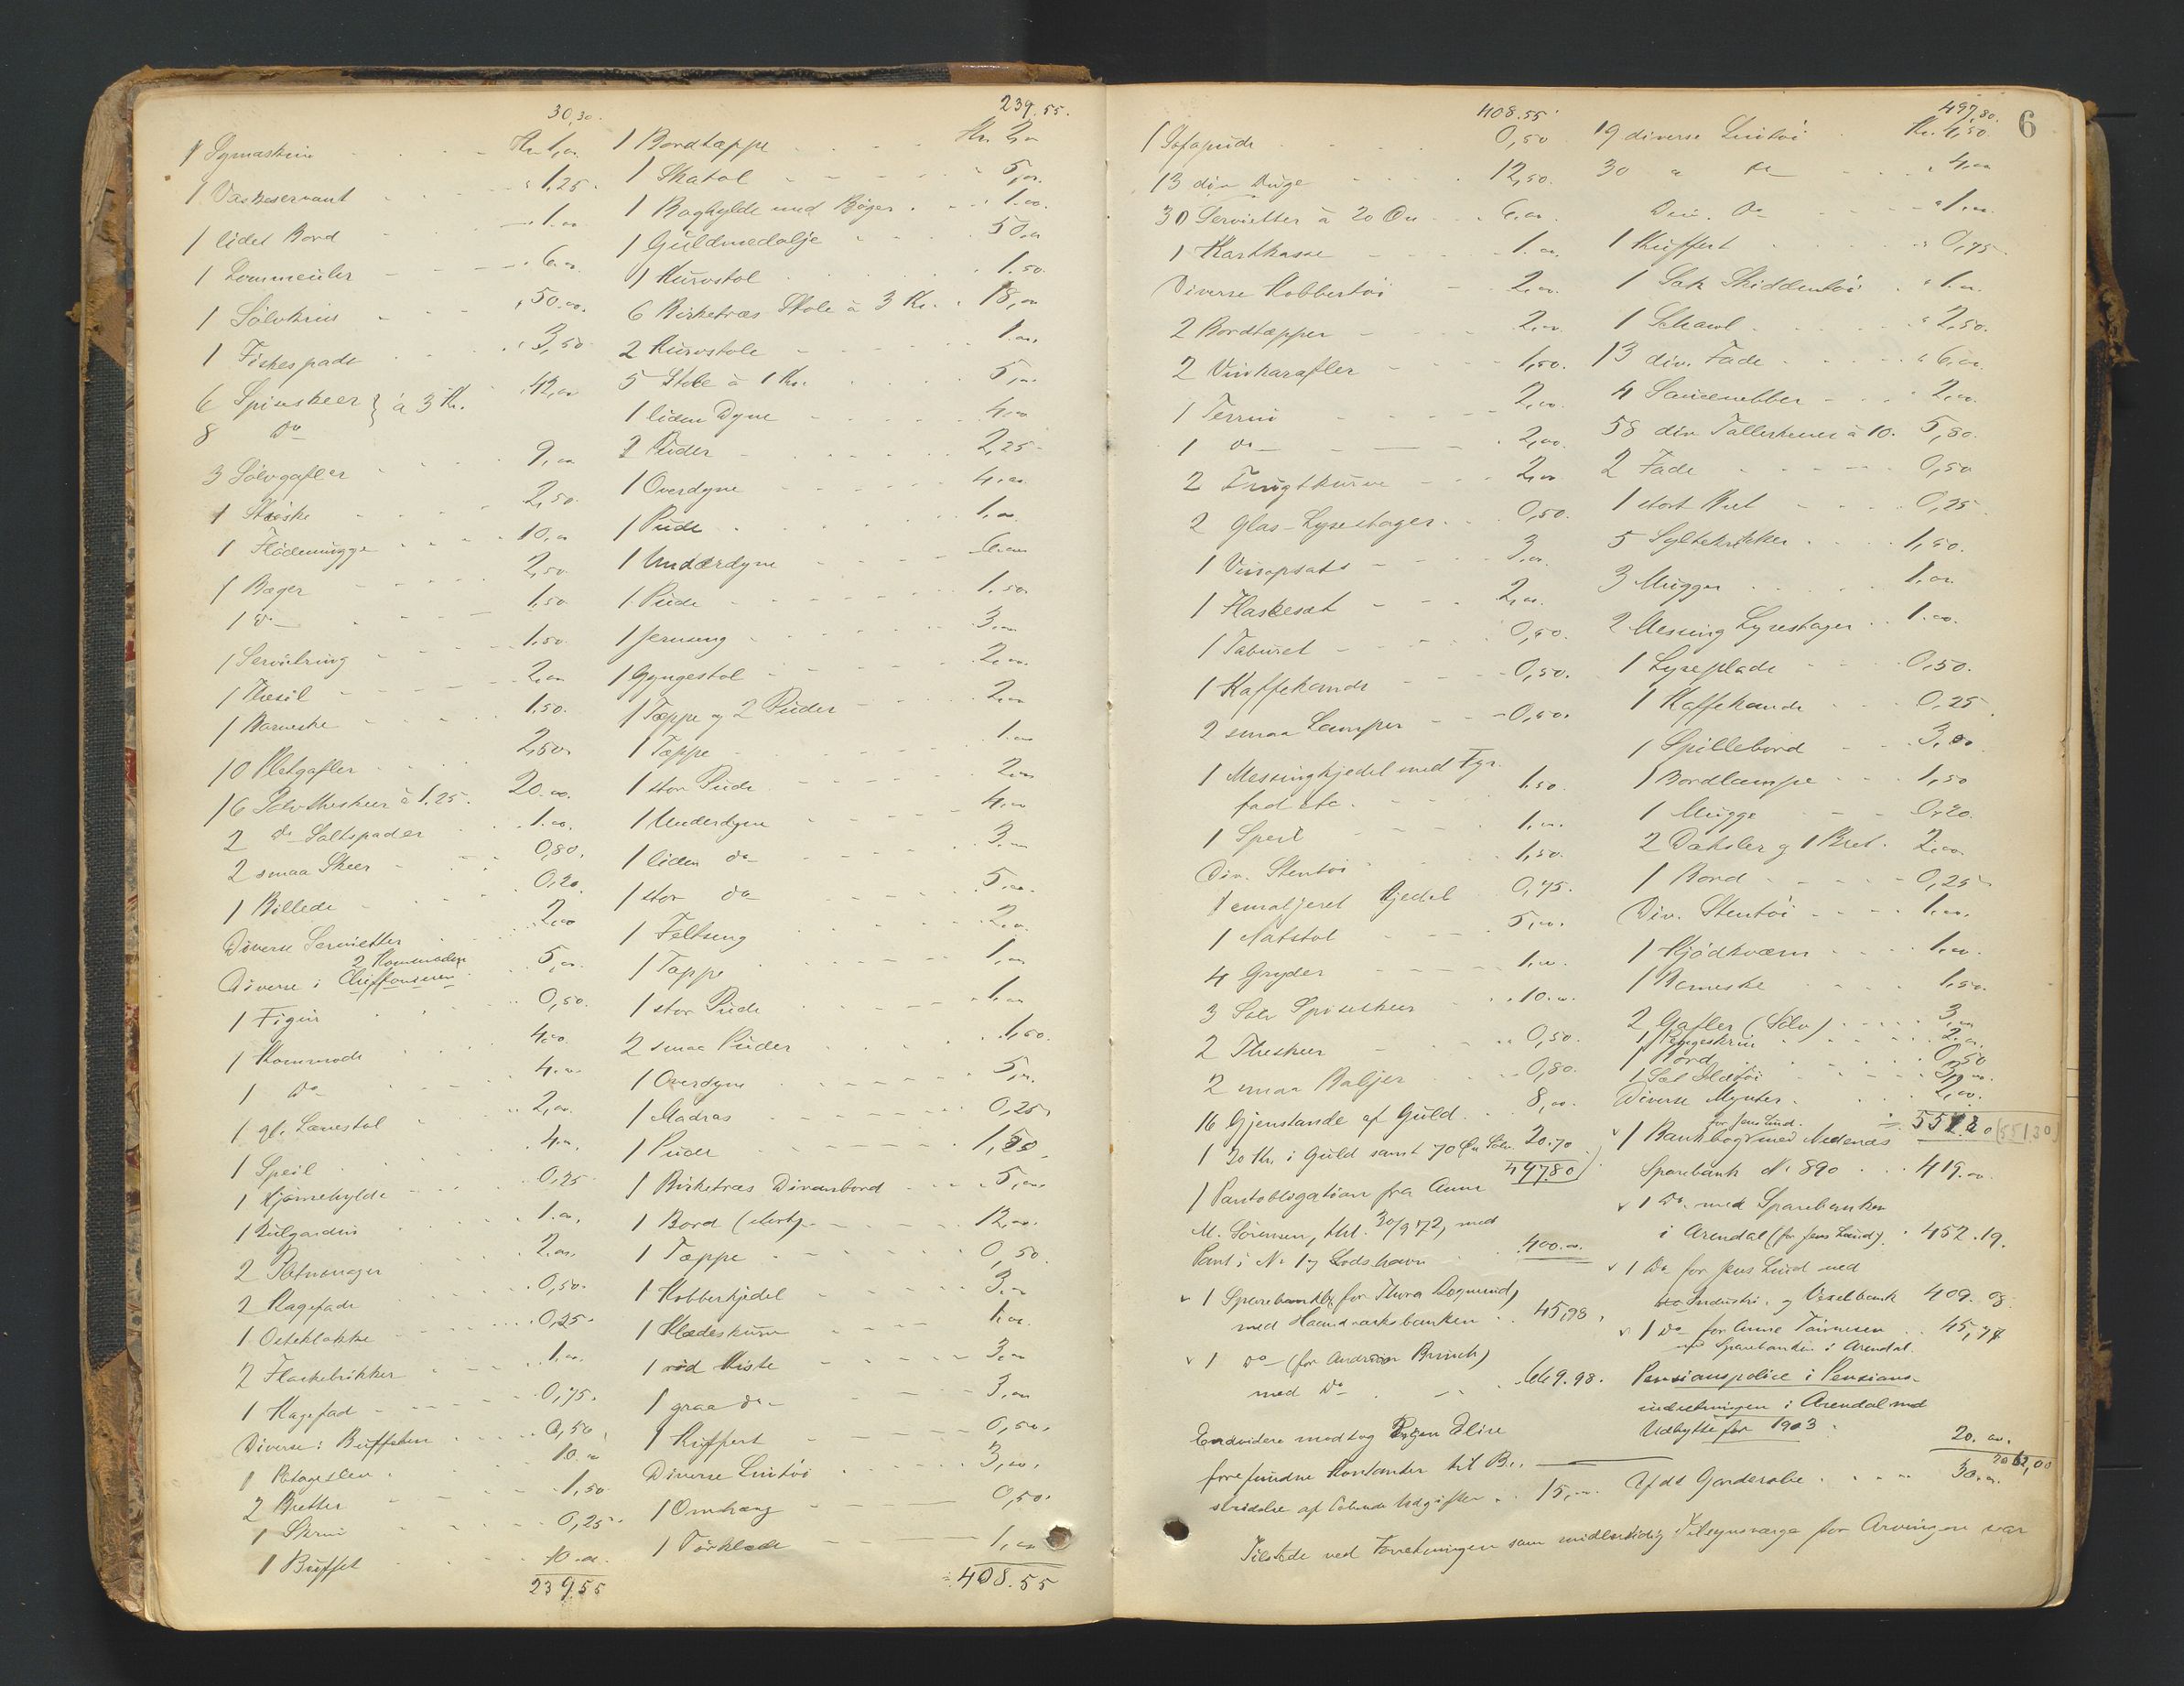 30,30.
1 Symaskin Kr. 1,00
1 Vaskeservant " 1,25.
1 lidet Bord 1.00
1 Lommeuhr 6.00
1 Sølvkrus 50.00.
1 Fiskespade 3,50
6 Spiseskeer } à 3 Kr. 42,00
8 Do
3 Sølvgafler 9,00
1 Strøske 2,50.
1 Flødemugge 10,00
1 Bæger 2,50
1 Do 1,50
1 Serviëtring 1.50.
1 Thesil 2,00
1 Barneske 1,50.
10 Pletgafler 2,50
16 Sølvtheskeer à 1,25. 20.00.
2 Do Saltspader 1.00.
2 smaa Skeer 0,80.
1 Billede 0,20
Diverse Servietter 2,00
2 Kommoder
Diverse i Chiffonieren 5,00.
1 Figur 0,50.
1 Kommode 4,00.
1 Do 4.00
1 gl. Lænestol 2,00.
1 Speil 4.00
1 Hjørnehylde 0,25
1 Rulgardin 1.00.
2 2.00.
2 Kagefade 0,50.
1 Osteklokke 0,25.
2 Flaskebrikker 1.00.
1 Kagefad 0,75.
Diverse i Buffeten 0,50.
1 10.00
2 Bretter 1,50
1 Skrin 0,25.
1 Buffet 10.00.
239.55
239.55.
1 Bordtæppe Kr. 2,00
1 Skatol 5,00.
1 Boghylde med Bøger 1.00.
1 Guldmedalje 50.00
1 Kurvstol 1.50.
6 Birketræs Stole à 3 Kr. 18,00
2 Kurvstole 1.00.
5 Stole à 1 Kr. 5,00
1 liden Dyne 4,00
2 Puder 2,25
1 Overdyne 4.00
1 Pude 1.00
1 Underdyne 6.00
1 Pude 1.50
1 Jernseng 3.00
1 Gyngestol 2.00.
1 Tæppe og 2 Puder 2,00
1 Tæppe 1.00
1 stor Pude 2.00
1 Underdyne 4.00
1 liden do 3.00
1 stor do 5.00.
1 Feltseng 2.00.
1 Tæppe 1.00
1 stor Pude 1.00
2 smaa Puder 1,50.
1 Overdyne 5,00.
1 Madras 0,25
1 Puder 1,50.
1 Birketræs Divanbord 5,00
1 Bord 12,00.
1 Tæppe 0,50
1 Kobberkjedel 3.00
1 Klædeskurv 1.00.
1 rød Kiste 3.00
1 graa do 3.00
1 Kuffert 0,50.
Diverse Lintøi 3,00.
1 Omhæng 0,50.
1 Tørklæde 1,00
408.55
408.55
1 Sofapude 0,50
13 div Duge 12,50.
30 Servietter à 20 Øre 6.00.
1 Kastkasse 1.00.
Diverse Kobbertøi 2,00.
2 Bordtæpper 2,00.
2 Vinkarafler 1,50.
1 Terrin 2,00.
1 do 2,00.
2 Frugtkurve 2,00
2 Glas-Lysestager 0,50.
1 Vinopsats 3,00.
1 Flaskesæt 2,00.
1 Taburet 0,50.
1 Kaffekande 0,50.
2 smaa Lamper 0,50.
1 Messingkjedel med Fyr-
fad etc. 1.50.
1 Speil 1,00.
Div. Stentøi 1,50.
1 emaljeret Kjedel 0,75.
1 Natstol 5,00.
4 Gryder 1.00.
3 Sølv Spiseskeer 10.00.
2 Theskeer 0,50.
2 smaa Baljer 0,80.
16 Gjenstande af Guld 8,00.
1 20 Kr. i Guld samt 70 Øre Sølv. 20.70
497.80
1 Pantobligation fra Anne
M. Sørensen, thl. 30/9 72, med
Pant i No 17 Lodshavn 400.00.
1 Sparebankbg for Thora Dognund,
med Haandværksbanken 45,98.
1 do (for Andreas Brinch)
med Do 669.98.
Endvidere modtog Elise
forefundne Kontanter til B.-
stridelse af løbende Udgifter 15,00.
497,80. 6
19 diverse Lintøi Kr. 4,50.
30 " do 4.00
Div. Do 1.00.
1 Kuffert 0,75.
1 Sæk Skiddentøi 1.00.
1 Schawl 2,50.
13 div. Fade 6,00.
4 Saucenebber 2,00.
58 div Tallerkener à 10. 5,80.
2 Fade 0,50
1 stort Bret 0,25.
5 Syltekrukker 1,50.
3 Mugger 1.00.
2 Messing Lysestager 1.00.
1 Lyseplade 0.50.
1 Kaffekande 0,25
1 Spillebord 3,00
1 Bordlampe 1,50
1 Mugge 0,20.
2 Dæksler og 1 Bret. 2,00
1 Bord 0,25
Div. Stentøi 1.00.
1 Kjødkværn 1.00.
1 Barneske 1,50
2 Gafler (Sølv) 3,00
1 Pengeskrin 2,00.
1 Bord 0,50
1 Sæt
Diverse Mynter. 2,00.
for Jens Lund.
1 Bankbog med Nedenæs (551.30)
Sparebank No 890 419.00
1 Do med Sparebanken
i Arendal (for Jens Lund). 452.19.
1 Do for Jens Lund med
Industri- og Vexelbank 409.08
1 Do for Anne Tønnesen 45,74
Sparebanken i Arendal.
Pensionspolice i Pensions-
indretningen i Arendal med
Udbytte for 1903 20.00.
Afds Garderobe 30.00.
Tilstede ved Forretningen som midlertidig Tilsynsværge for Arvingen var